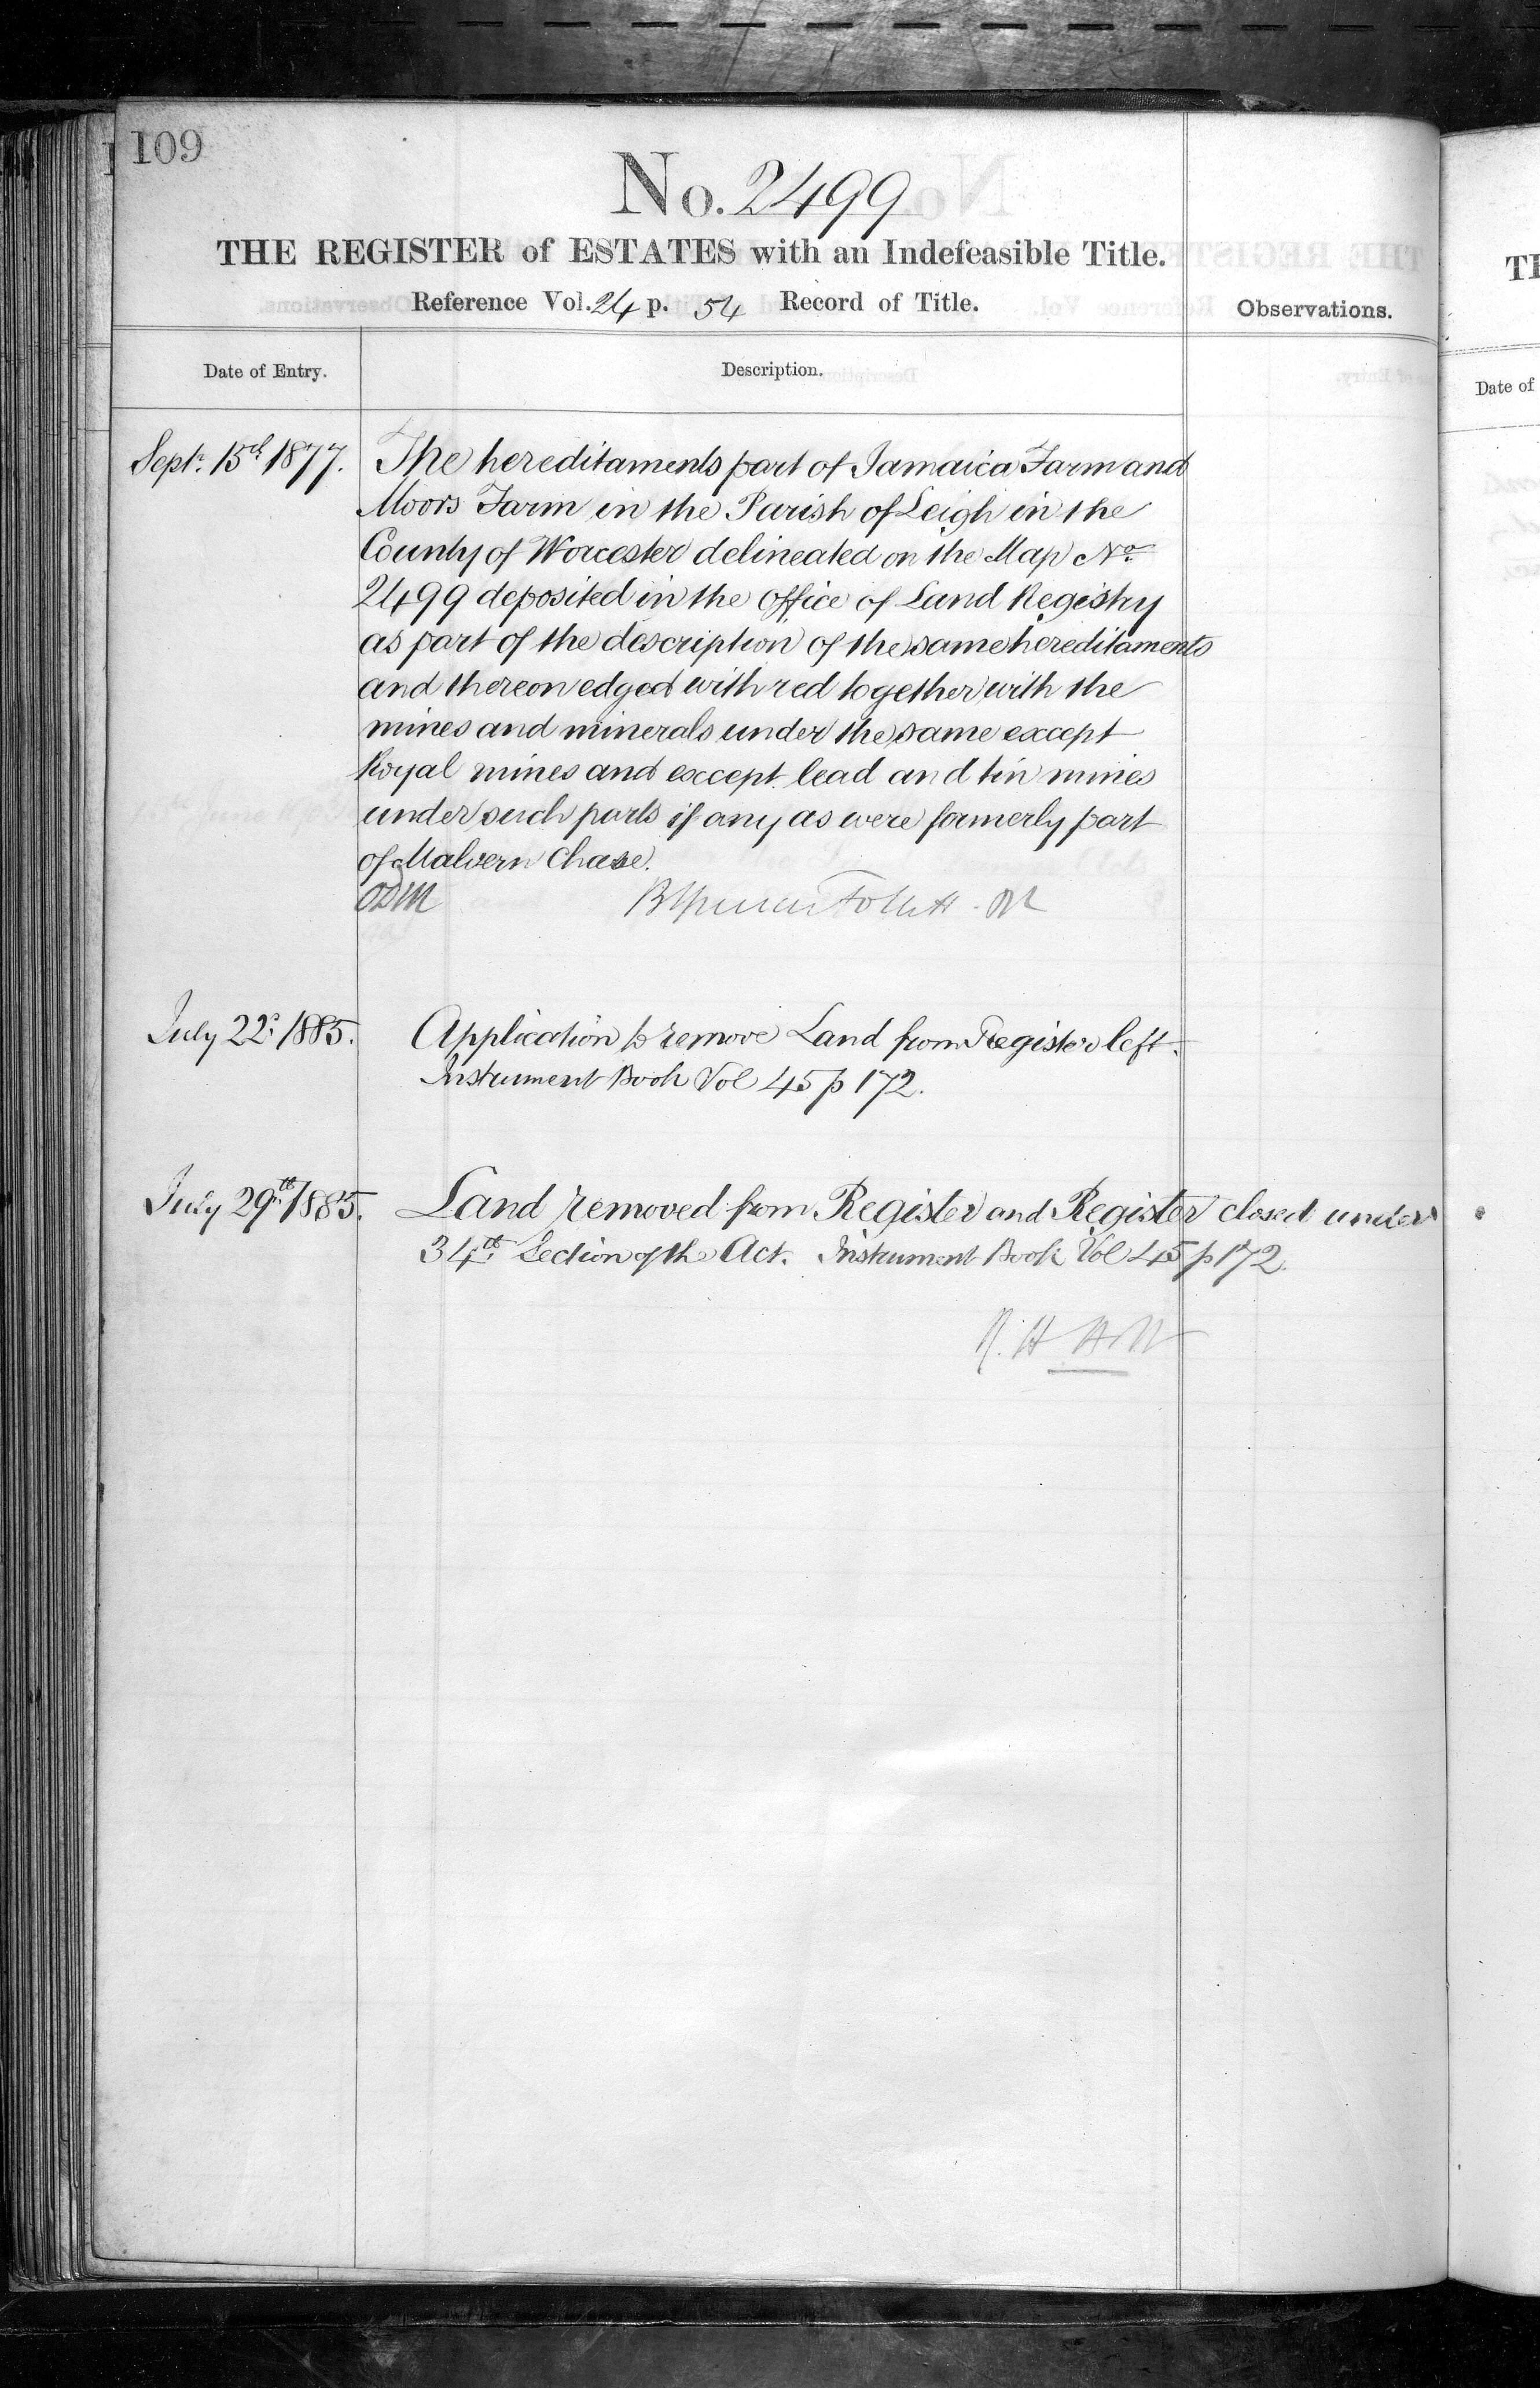 109
No. 2499
THE REGISTER of ESTATES with an Indefeasible Title.
Reference Vol. 24 p. 54 Record of Title.
Observations.
Date of Entry.
Description.
Sept. 15th 1877.
The hereditaments part of Jamaica Farm and
Moors Farm in the Parish of Leigh in the
County of Worcester delineated on the Map No
2499 deposited in the office of Land Registry
as part of the description of the same hereditaments
and thereon edged with red together with the
mines and minerals under the same except
Royal mines and except lead and tin mines
under such parts if any as were formerly part
of Malvern Chase.
July 22d 1885.
Application to remove Land from Register left.
Instrument Book Vol 45 p 172.
July 29th 1885.
Land removed from Register and Register closed under
34th Section of the Act. Instrument Book Vol 45 p 172.
R. H. Holt
Date of